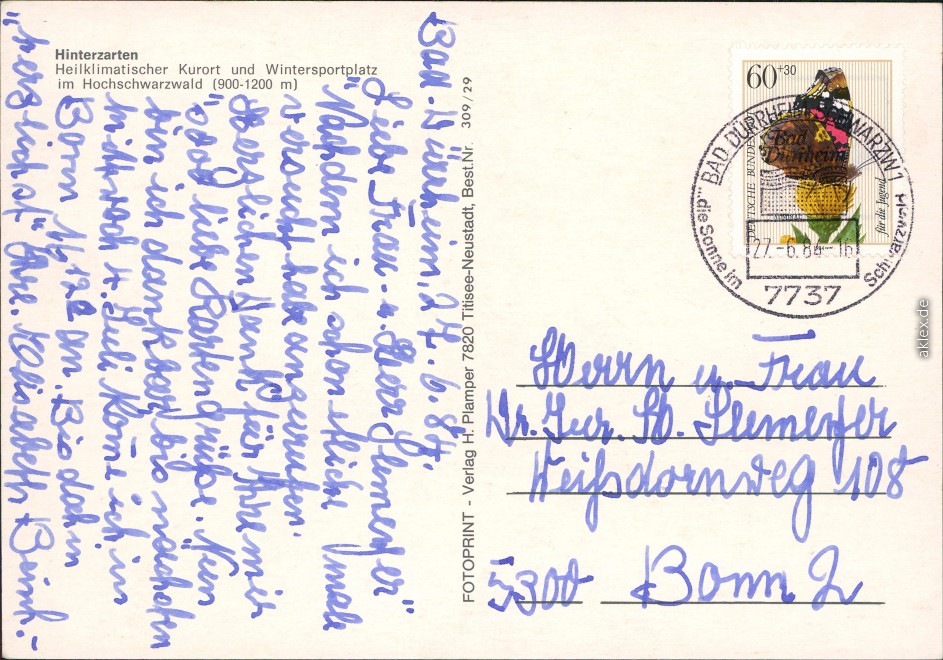 Hinterzarten
Heilklimatischer Kurort und Wintersportplatz
im Hochschwarzwald (900-1200 m)
Bad. Dürrheim, 27. 6. 84.
Liebe Frau u. Herr
"Nachdem ich schon etliche male
versucht habe anzurufen.
Herzlichen Dank für Ihre mir
"sooo liebe Kartengrüße. Nun
bin ich dankbar bis nächsten
Mittwoch 4. Juli kome ich in
Bonn 1/2 12 an. Bis dahin
"herzlichst" Ihre. Elisabeth
FOTOPRINT - Verlag H. Plamper 7820 Titisee-Neustadt, Best.Nr. 309/29
60+30
DEUTSCHE BUNDESPOST
für die Jugend
BAD DÜRRHEIM SCHWARZW 1
Bad
Dürrheim
27.-6.84-16
...die Sonne im Schwarzwald
7737
Herrn u. Frau
Dr. Jur. H.
Weißdornweg 108
5300 Bonn 2
aklex.de